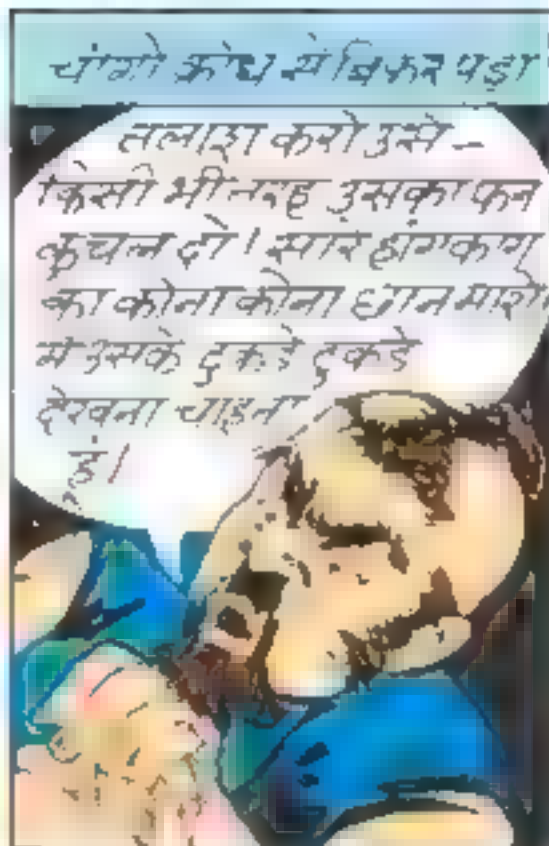 चांगो क्रोध से बिफर पड़ा
तलाश करो उसे -
किसी भी तरह उसका फन
कुचल दो। सारे हांगकांग
का कोना कोना छान मारो।
मैं उसके टुकड़े टुकड़े
देखना चाहता
हूं।